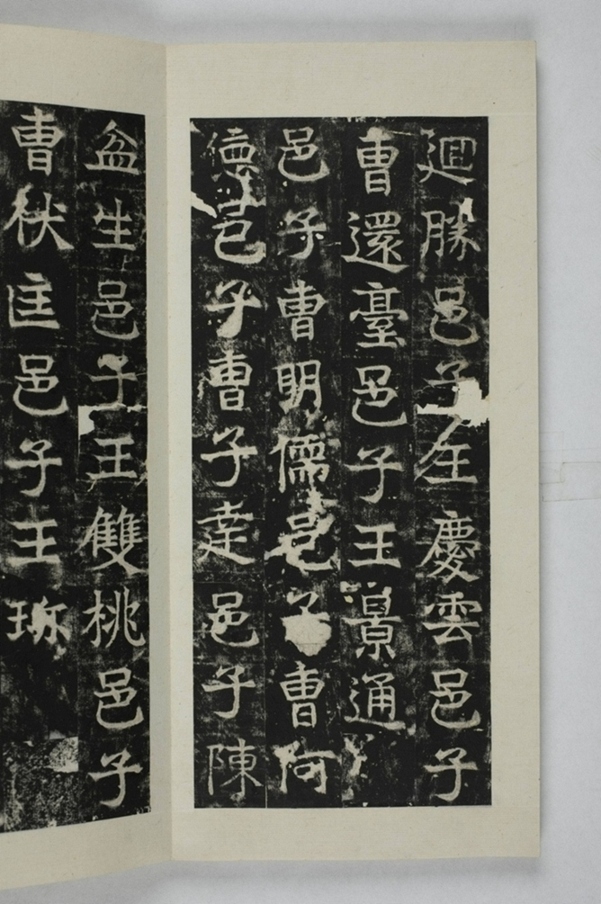 迴勝邑子左慶雲邑子
曹還臺邑子王景通
邑子曹明儒邑子曹阿
德邑子曹子建邑子陳
盆生邑子王雙桃邑子
曹伏匡邑子王